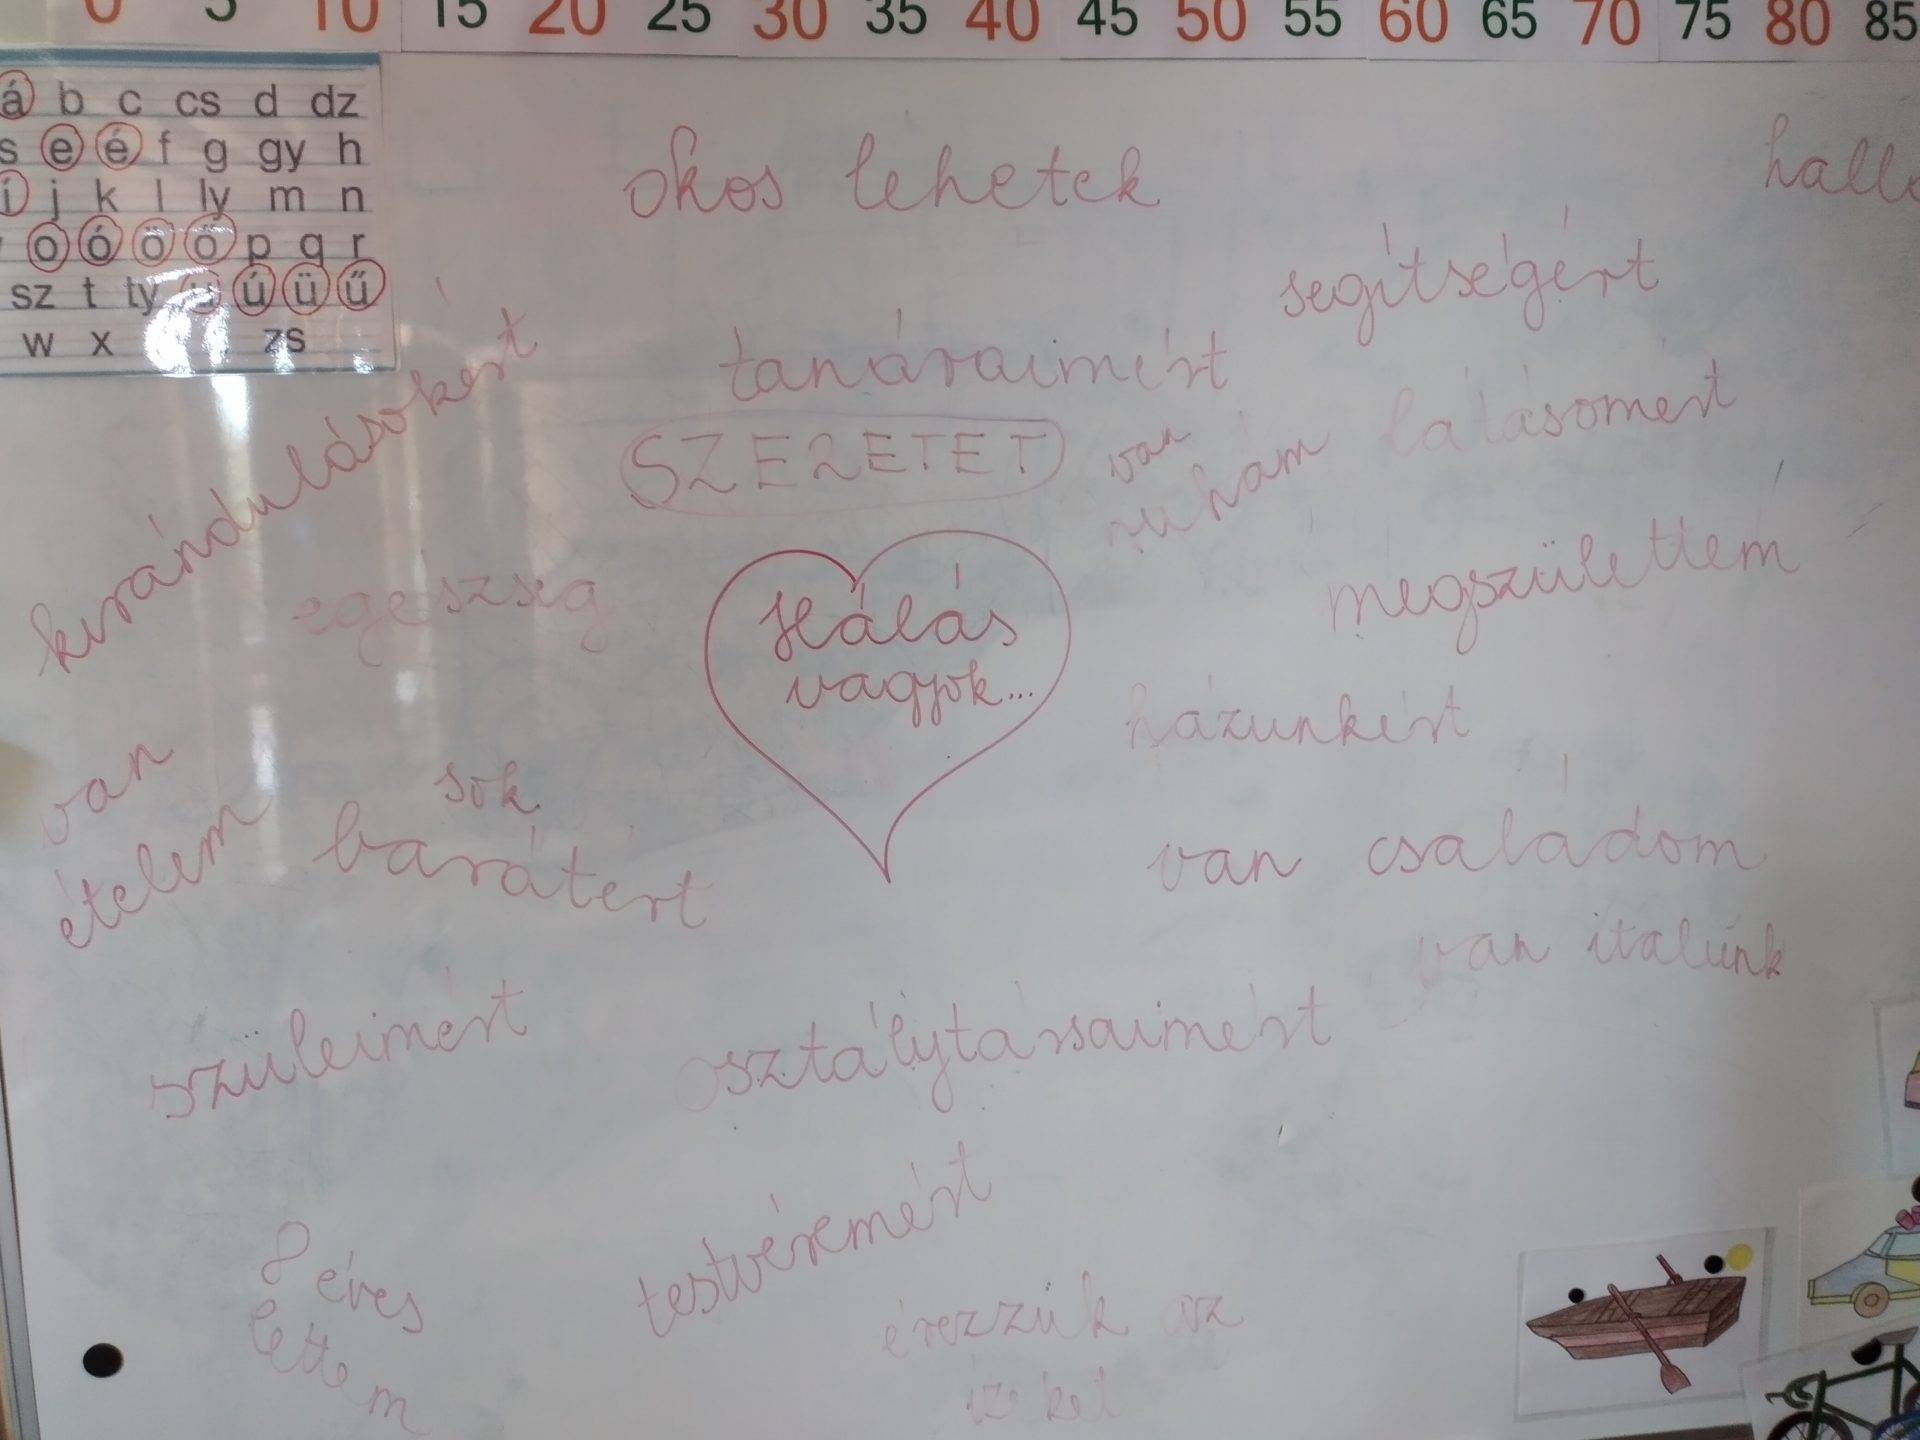 0 5 10 15 20 25 30 35 40 45 50 55 60 65 70 75 80 85
á b c cs d dz
s e é f g gy h
í j k l ly m n
o ó ö ő p q r
sz t ty u ú ü ű
w x zs
okos lehetek
segítségért
tanáraimért
kirándulásokért
SZERETET
van
ruhám
látásomért
egészség
Hálás
vagyok...
megszülettem
házunkért
van
ételem
sok
barátért
van családom
van italunk
szüleimért
osztálytársaimért
testvéremért
8 éves
lettem
érezzük az
ízeket